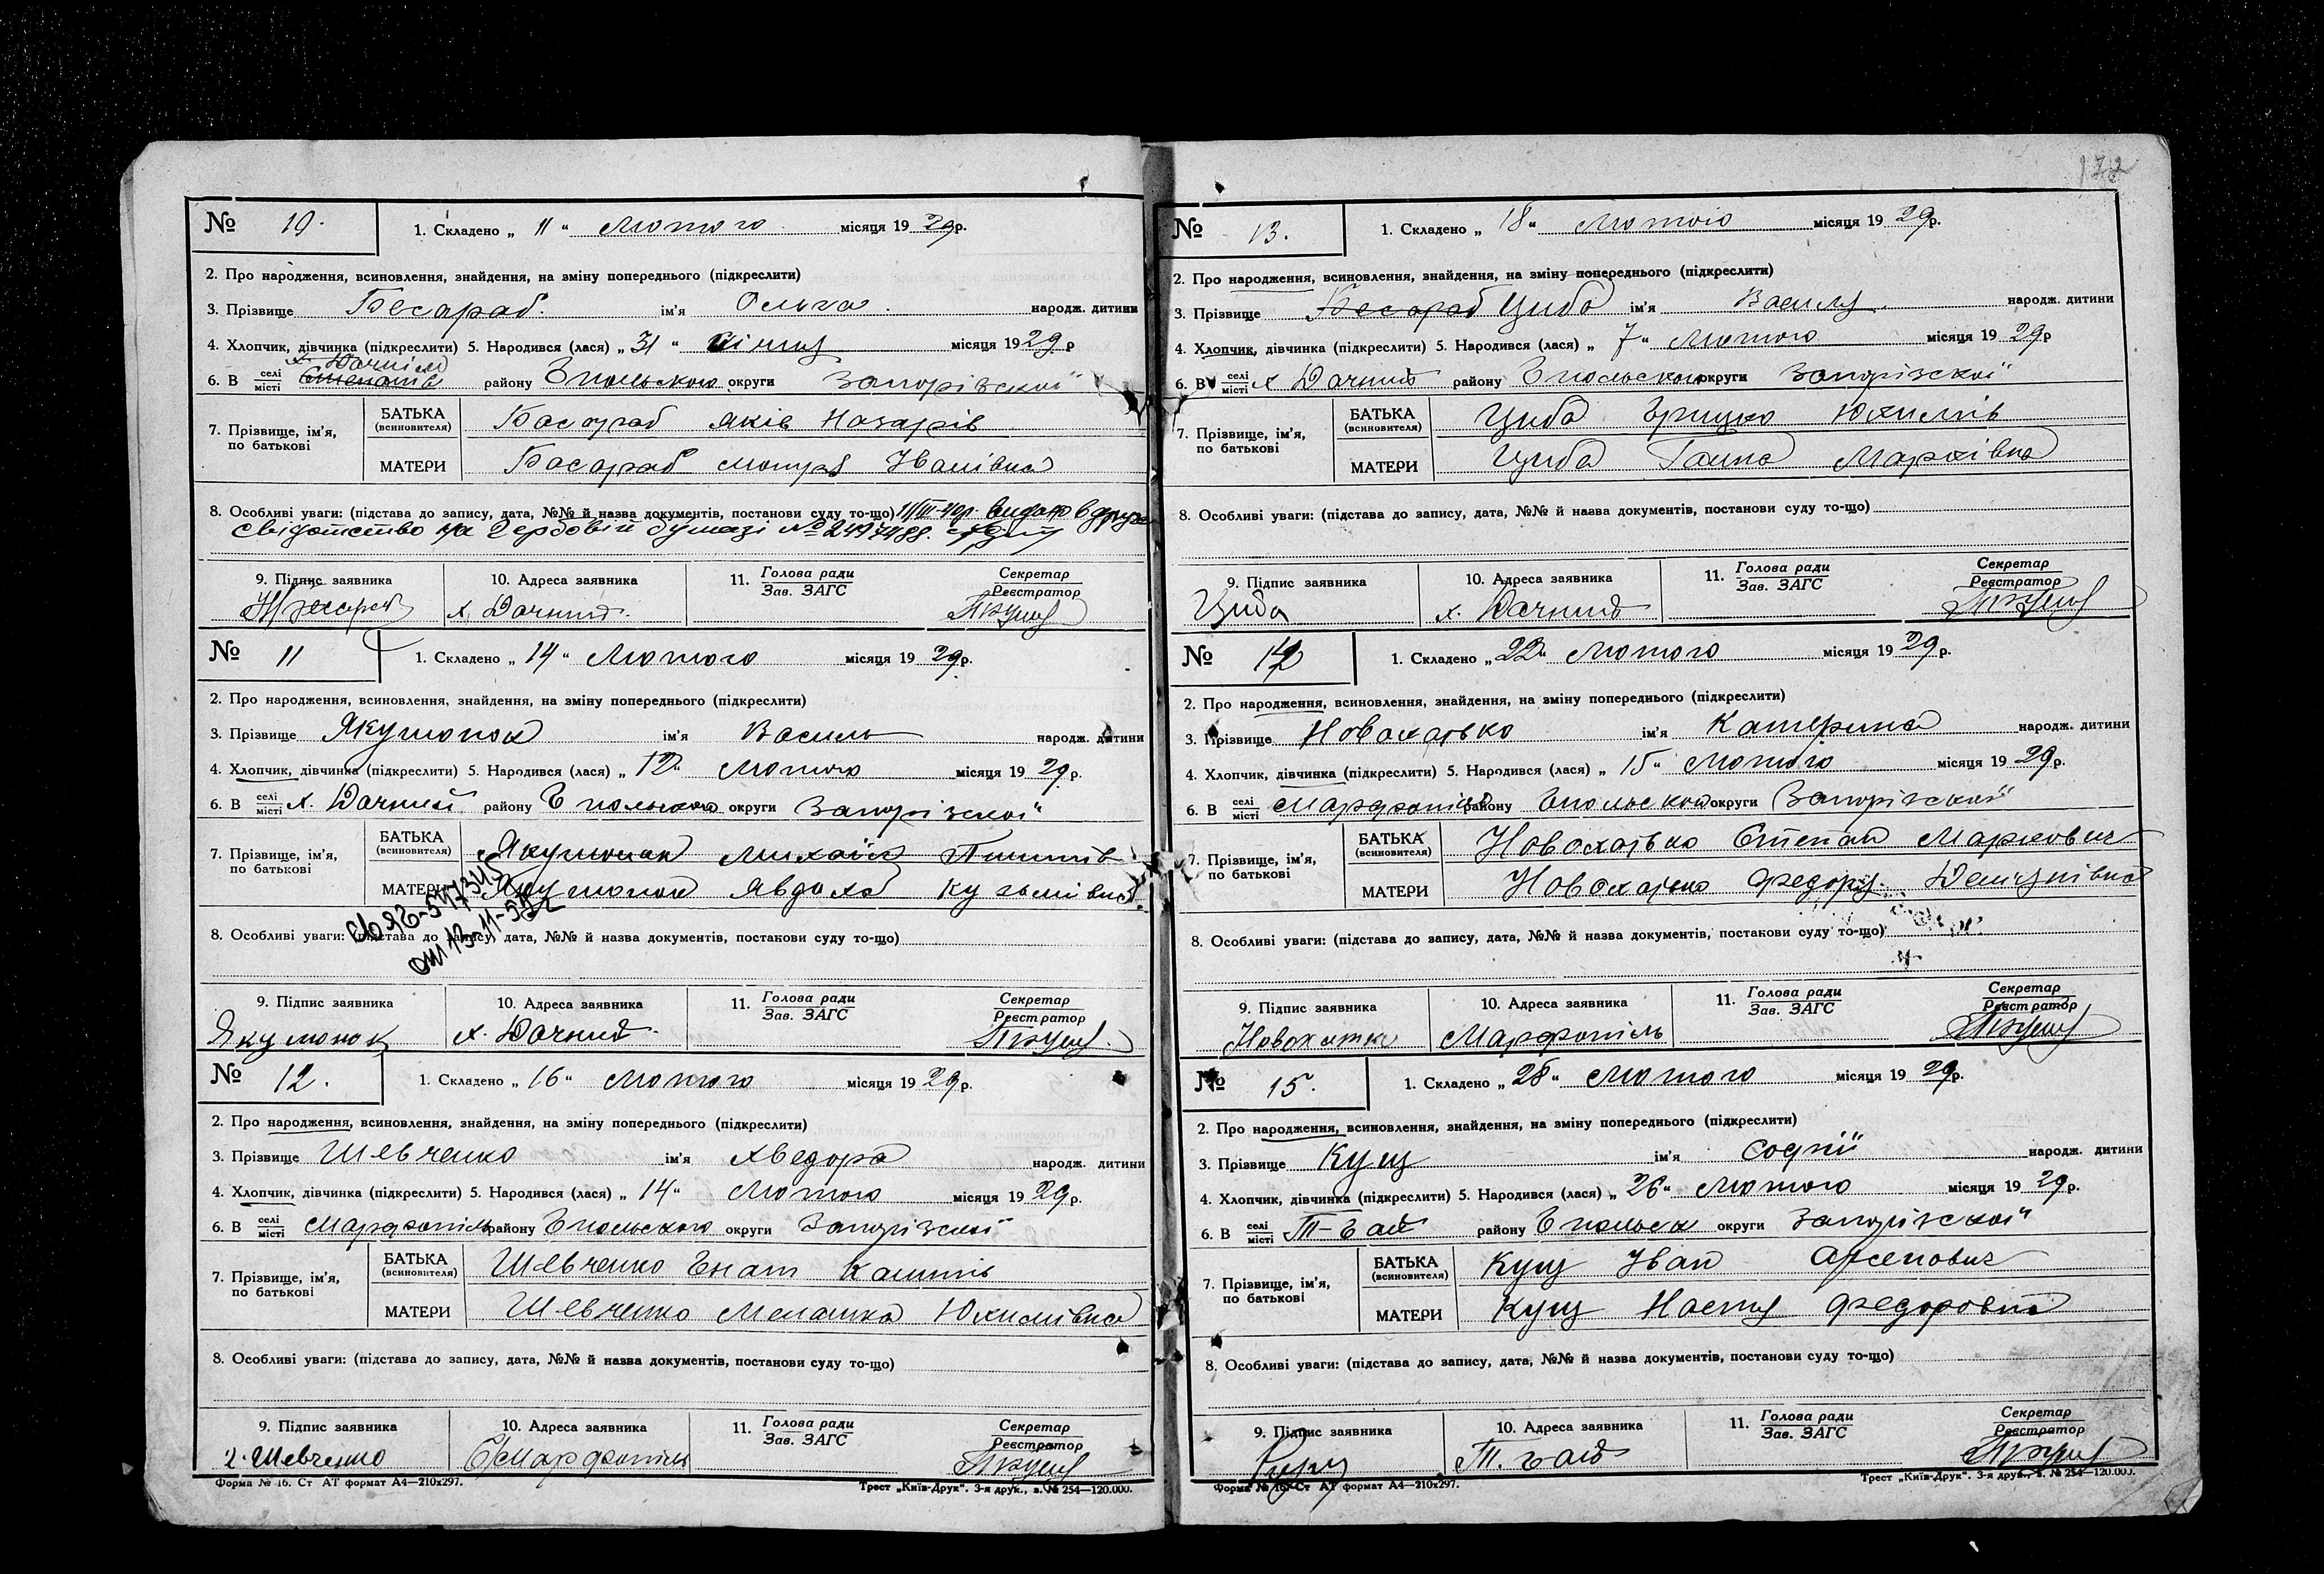 172
№ 10.
1. Складено „ 11 “ Лютого місяця 19 29р.
2. Про народження, всиновлення, знайдення, на зміну попереднього (підкреслити)
3. Прізвище Бесараб. ім’я Ольга. народж. дитини
4. Хлопчик, дівчинка (підкреслити) 5. Народився (лася) „ 31 “ Січня місяця 19 29 р
6. В селі/місті х. Дачний району округи Запорізської
7. Прізвище, ім’я, по батькові
БАТЬКА (всиновителя) Басараб Яків Назарів
МАТЕРИ Басараб Мотря Іванівна
8. Особливі уваги: (підстава до запису, дата, №№ й назва документів, постанови суду то-що) видано вдруге
свідотство на Гербовій бумазі № 2497488.
9. Підпис заявника
10. Адреса заявника х. Дачний.
11. Голова ради / Зав. ЗАГС
Секретар / Реєстратор
№ 11
1. Складено „ 14 “ Лютого місяця 19 29р.
2. Про народження, всиновлення, знайдення, на зміну попереднього (підкреслити)
3. Прізвище Якумонок ім’я Василь народж. дитини
4. Хлопчик, дівчинка (підкреслити) 5. Народився (лася) „ 12 “ Лютого місяця 19 29р.
6. В селі/місті х. Дачний району округи Запорізської
7. Прізвище, ім’я, по батькові
БАТЬКА (всиновителя) Якумонок Михайло
МАТЕРИ Якумонок Явдоха Кузьмівна
8. Особливі уваги: (підстава до запису, дата, №№ й назва документів, постанови суду то-що)
9. Підпис заявника Якумонок
10. Адреса заявника х. Дачний.
11. Голова ради / Зав. ЗАГС
Секретар / Реєстратор
№ 12.
1. Складено „ 16 “ Лютого місяця 19 29р.
2. Про народження, всиновлення, знайдення, на зміну попереднього (підкреслити)
3. Прізвище Шевченко ім’я Хведора народж. дитини
4. Хлопчик, дівчинка (підкреслити) 5. Народився (лася) „ 14 “ Лютого місяця 19 29р.
6. В селі/місті Марфопіль району округи Запорізської
7. Прізвище, ім’я, по батькові
БАТЬКА (всиновителя) Шевченко Гнат
МАТЕРИ Шевченко Мелашка Юхимівна
8. Особливі уваги: (підстава до запису, дата, №№ й назва документів, постанови суду то-що)
9. Підпис заявника Г. Шевченко
10. Адреса заявника Марфопіль
11. Голова ради / Зав. ЗАГС
Секретар / Реєстратор
Форма № 16. Ст АТ формат А4—210x297.
Трест „Київ-Друк“. 3-я друк., з. № 254—120.000.
№ 13.
1. Складено „ 18 “ Лютого місяця 19 29р.
2. Про народження, всиновлення, знайдення, на зміну попереднього (підкреслити)
3. Прізвище Бесараб Циба ім’я Василя народж. дитини
4. Хлопчик, дівчинка (підкреслити) 5. Народився (лася) „ 7 “ Лютого місяця 19 29р
6. В селі/місті х Дачний району округи Запорізської
7. Прізвище, ім’я, по батькові
БАТЬКА (всиновителя) Циба Грицко Юхимів
МАТЕРИ Циба Ганна Марківна
8. Особливі уваги: (підстава до запису, дата, №№ й назва документів, постанови суду то-що)
9. Підпис заявника Циба
10. Адреса заявника х. Дачний
11. Голова ради / Зав. ЗАГС
Секретар / Реєстратор
№
1. Складено „ 22 “ Лютого місяця 19 29р.
2. Про народження, всиновлення, знайдення, на зміну попереднього (підкреслити)
3. Прізвище Новохатько ім’я Катерина народж. дитини
4. Хлопчик, дівчинка (підкреслити) 5. Народився (лася) „ 15 “ Лютого місяця 19 29р.
6. В селі/місті Марфопіль району округи Запорізської
7. Прізвище, ім’я, по батькові
БАТЬКА (всиновителя) Новохатько Степан Маркович
МАТЕРИ Новохатько Федора
8. Особливі уваги: (підстава до запису, дата, №№ й назва документів, постанови суду то-що)
9. Підпис заявника
10. Адреса заявника Марфопіль
11. Голова ради / Зав. ЗАГС
Секретар / Реєстратор
№ 15.
1. Складено „ 28 “ Лютого місяця 19 29р.
2. Про народження, всиновлення, знайдення, на зміну попереднього (підкреслити)
3. Прізвище Кущ ім’я Софії народж. дитини
4. Хлопчик, дівчинка (підкреслити) 5. Народився (лася) „ 26 “ Лютого місяця 19 29р.
6. В селі/місті Т-Гай району округи Запорізської
7. Прізвище, ім’я, по батькові
БАТЬКА (всиновителя) Кущ Іван Арсенович
МАТЕРИ Кущ Настя Федоровна
8. Особливі уваги: (підстава до запису, дата, №№ й назва документів, постанови суду то-що)
9. Підпис заявника Кущ
10. Адреса заявника Т. Гай
11. Голова ради / Зав. ЗАГС
Секретар / Реєстратор
Форма № 16. Ст АТ формат А4—210x297.
Трест „Київ-Друк“. 3-я друк., з. № 254—120.000.